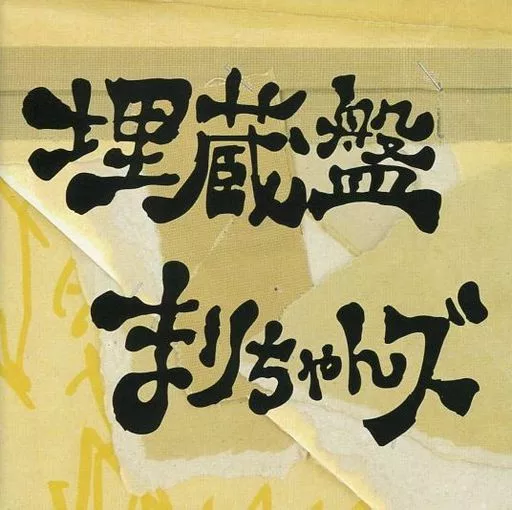 埋蔵盤
まりちゃんズ